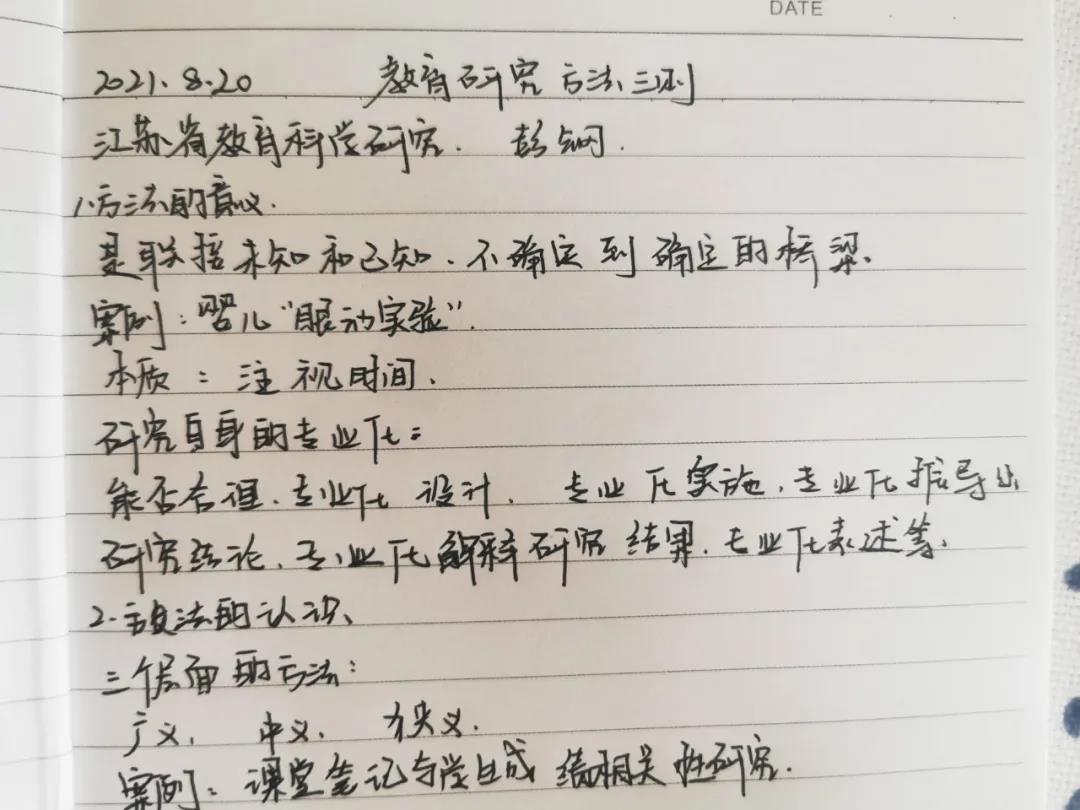 DATE
2021.8.20 教育研究方法三则
江苏省教育科学研究. 彭钢.
1.方法的意义.
是联接未知和已知.不确定到确定的桥梁.
案例:婴儿“眼动实验”.
本质:注视时间.
研究自身的专业化:
能否合理.专业化设计.专业化实施.专业化推导出
研究结论.专业化解释研究结果.专业化表述等.
2.方法的认识、
三个层面的方法:
广义.中义.狭义.
案例:课堂笔记与学生成绩相关性研究.